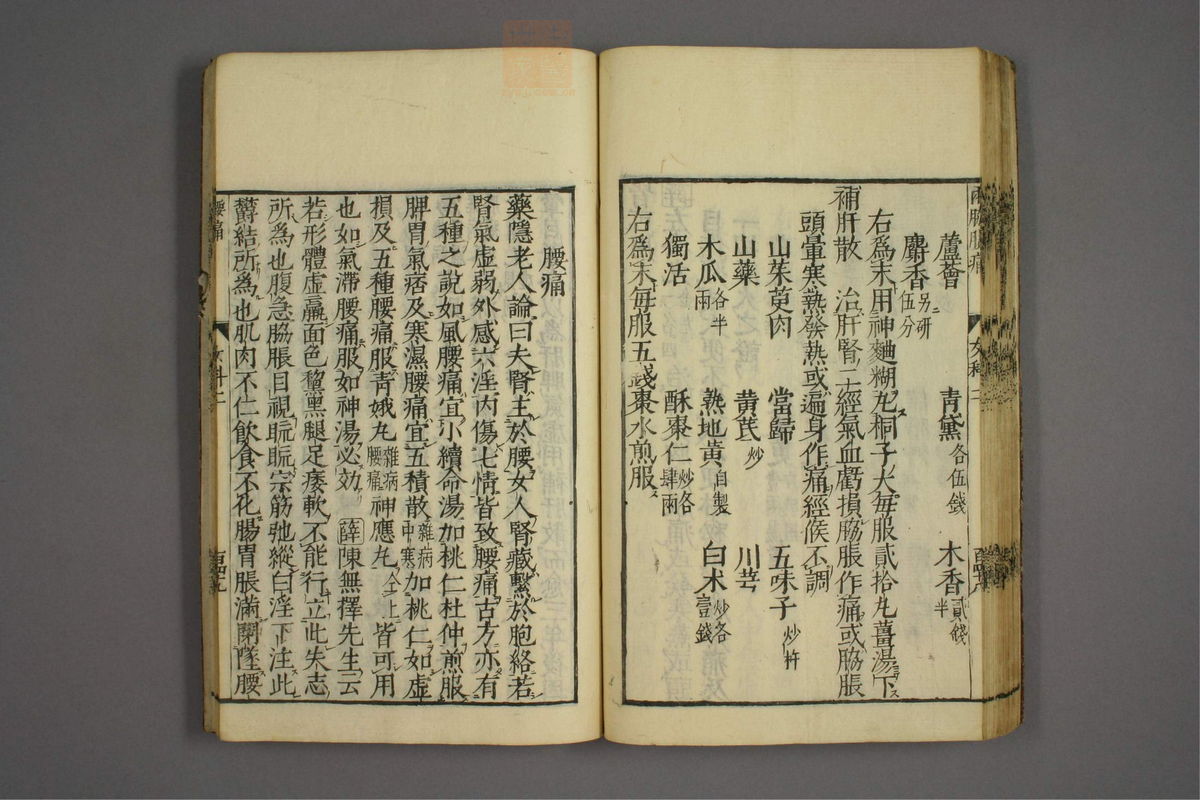 蘆薈 青黛各伍錢 木香貳錢半
麝香另研伍分
右爲末用神麯糊丸桐子大每服貳拾丸薑湯下
補肝散 治肝腎二經氣血虧損脇脹作痛或脇脹
頭暈寒熱發熱或遍身作痛經候不調
山茱萸肉 當歸 五味子炒杵
山藥 黄芪炒 川芎
木瓜各半兩 熟地黄自製 白术炒各壹錢
獨活 酥棗仁炒各肆兩
右爲末每服五錢棗水煎服
腰痛
藥隱老人論曰夫腎主於腰女人腎藏繫於胞絡若
腎氣虛弱外感六淫内傷七情皆致腰痛古方亦有
五種之說如風腰痛宜小續命湯加桃仁杜仲煎服
脾胃氣痞及寒濕腰痛宜五積散雜病中寒加桃仁如虛
損及五種腰痛服青娥丸雜病腰痛神應丸仝上皆可用
也如氣滯腰痛服如神湯必効薛陳無擇先生云
若形體虛羸面色黧黑腿足痿軟不能行立此失志
所爲也腹急脇脹目視䀮䀮宗筋弛縱白淫下注此
欝結所爲也肌肉不仁飲食不化腸胃脹滿閉墜腰
腰痛 女科二
女科二